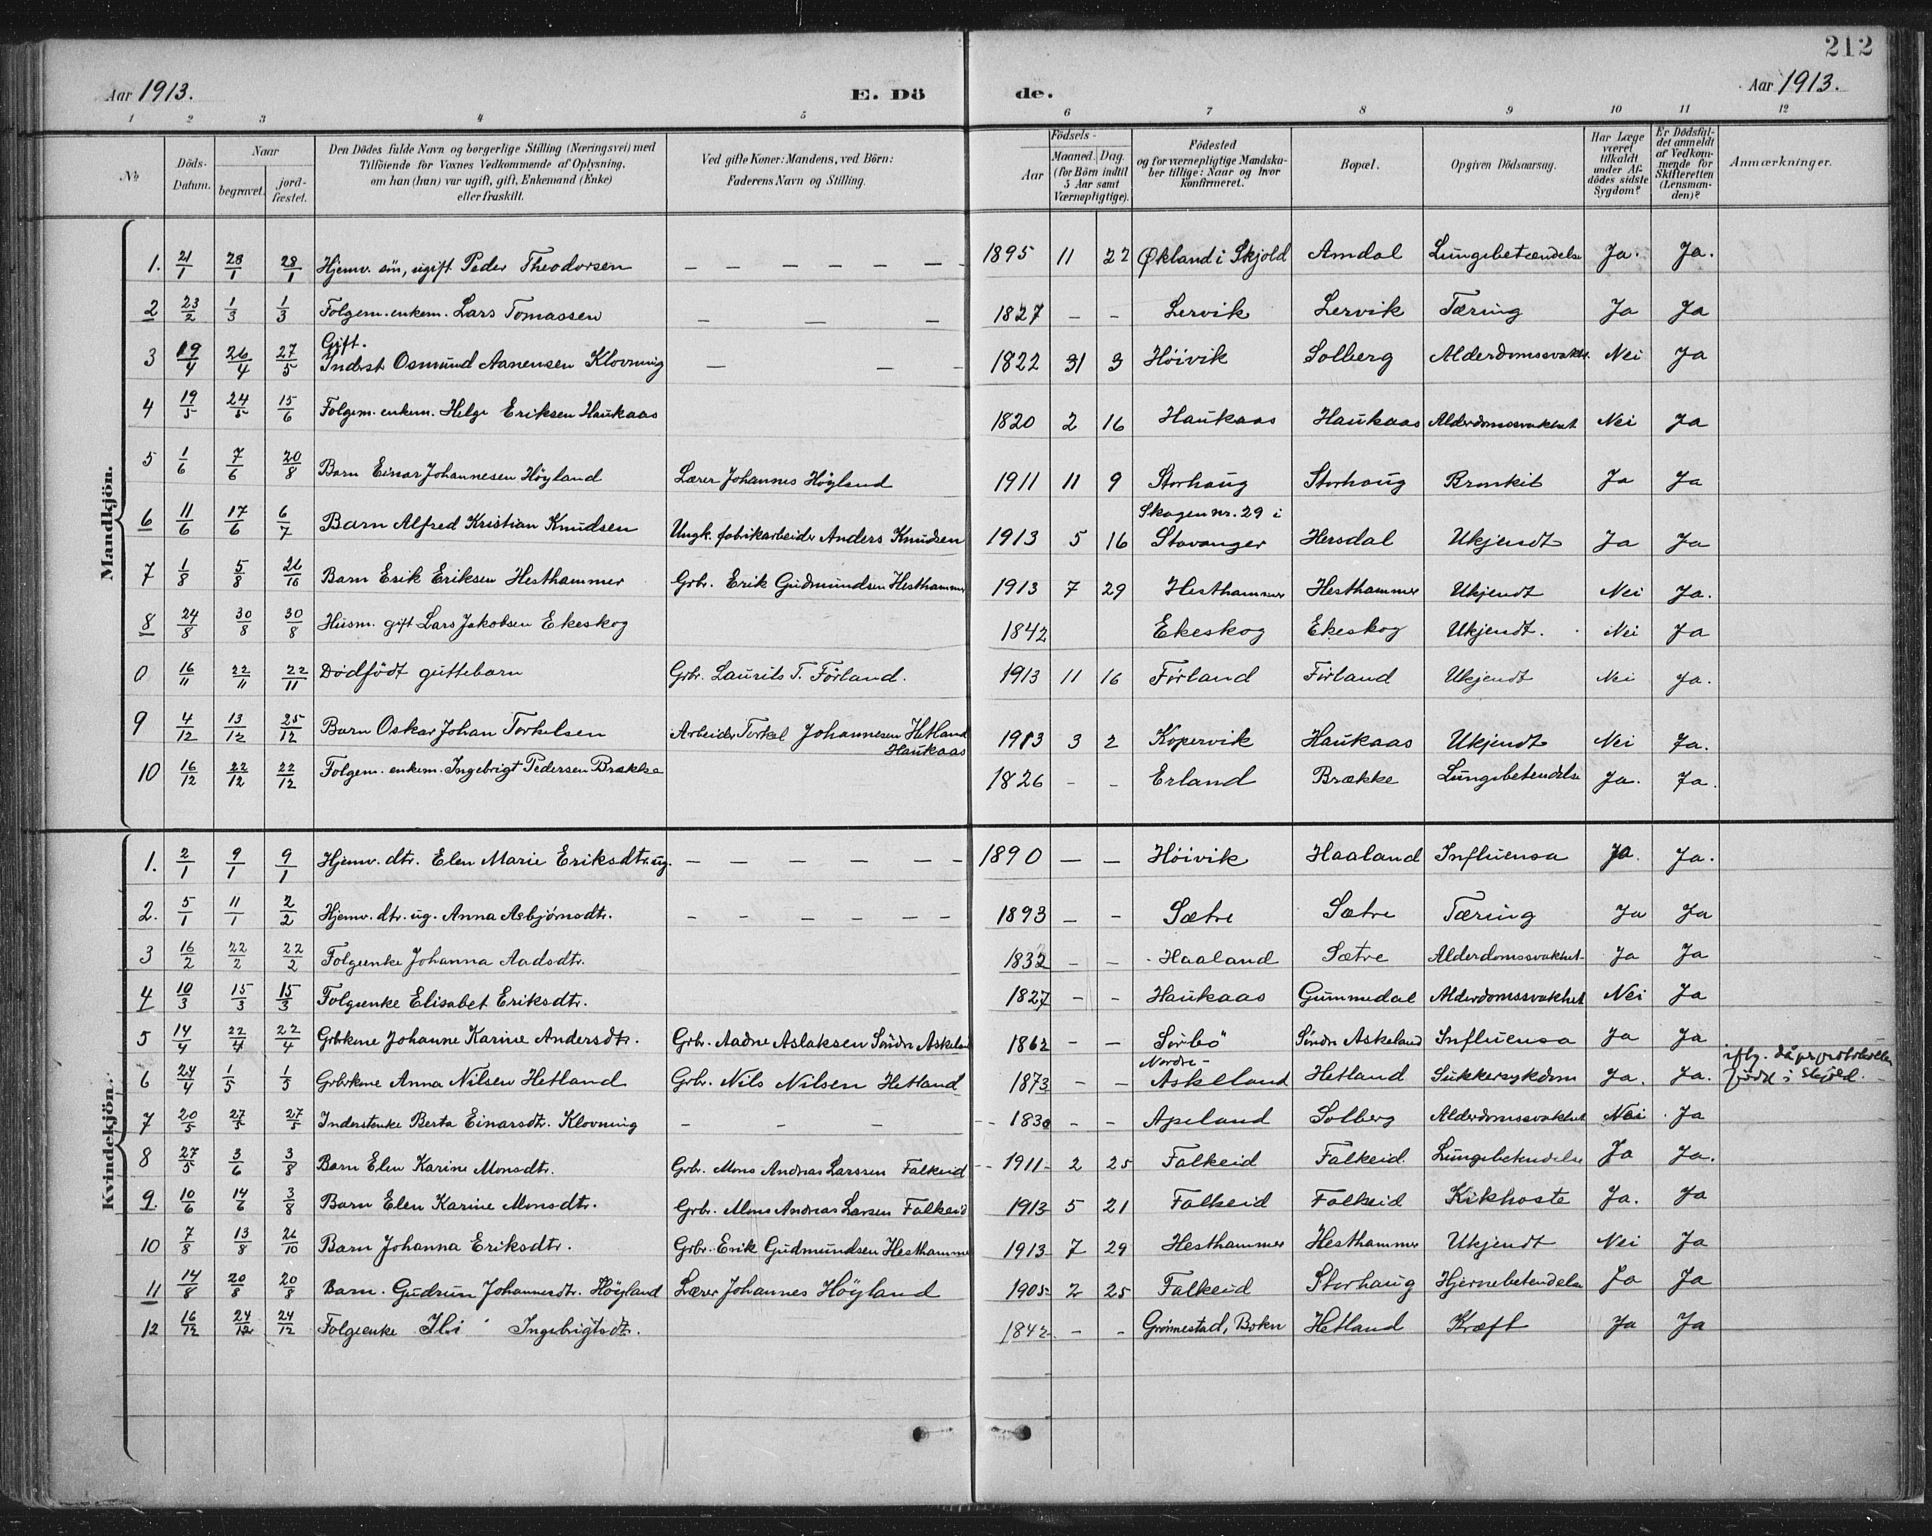 212
Aar 1913. E. Dö de. Aar 1913.
1 2 3 4 5 6 7 8 9 10 11 12
No Döds-Datum. Naar begravet. jordfæstet. Den Dödes fulde Navn og borgerlige Stilling (Næringsvei) med Tilföiende for Voxnes Vedkommende af Oplysning, om han (hun) var ugift, gift, Enkemand (Enke) eller fraskilt. Ved gifte Koner: Mandens, ved Börn: Faderens Navn og Stilling. Födsels- Aar Maaned. Dag. (for Börn indtil 5 Aar samt Værnepligtige). Födested og for værnepligtige Mandskaber tillige: Naar og hvor konfirmeret. Bopæl. Opgiven Dödsaarsag. Har Læge været tilkaldt under Afdödes sidste Sygdom? Er Dödsfaldet anmeldt af Vedkommende for Skifteretten (Lensmanden)? Anmærkninger.
Mandkjön.
1. 21/1 28/1 28/1 Hjemv. sön, ugift Peder Theodorsen — — — — — — 1895 11 22 Økland i Skjold Amdal Lungebetændelse Ja. Ja.
2 23/2 1/3 1/3 Folgem. enkem. Lars Tomassen — — — 1827 — — Lervik Lervik Tæring Ja Ja
Gift.
3 19/4 26/4 27/5 Inderst Osmund Aanensen Klovning — — — 1822 31 3 Höivik Solberg Alderdomssvakhet. Nei Ja
4 19/5 24/5 15/6 Folgem. enkem. Helge Eriksen Haukaas 1820 2 16 Haukaas Haukaas Alderdomssvakhet Nei Ja
5 1/6 7/6 20/8 Barn Einar Johannesen Höyland Lærer Johannes Höyland 1911 11 9 Storhaug Storhaug Bronkit Ja Ja
Skagen nr. 29 i
6 11/6 17/6 6/7 Barn Alfred Kristian Knudsen Ungk. fabrikarbeider Anders Knudsen 1913 5 16 Stavanger Hersdal Ukjendt Ja Ja
7 1/8 5/8 26/10 Barn Erik Eriksen Hesthammer Grbr. Erik Gudmundsen Hesthammer 1913 7 29 Hesthammer Hesthammer Ukjendt Nei Ja.
8 24/8 30/8 30/8 Husm. gift Lars Jakobsen Ekeskog 1842 Ekeskog Ekeskog Ukjendt. Nei Ja
0 16/11 22/11 22/11 Dödfödt guttebarn Grbr. Laurits T. Førland. 1913 11 16 Førland Førland Ukjendt Nei Ja.
9 4/12 13/12 25/12 Barn Oskar Johan Torkelsen Arbeider Torkel Johannesen Hetland 1913 3 2 Kopervik Haukaas Ukjendt Nei Ja.
Haukaas
10 16/12 22/12 22/12 Folgem. enkem. Ingebrigt Pedersen Brække 1826 — — Erland Brække Lungebetendelse Ja. Ja.
Kvindekjön.
1. 2/1 9/1 9/1 Hjemv. dtr. Elen Marie Eriksdtr. ug. — — — — — — 1890 — — Höivik Haaland Influensa Ja. Ja.
2. 5/1 11/1 2/2 Hjemv. dtr. ug. Anna Asbjørnsdtr. — — — — — — 1893 — — Sætre Sætre Tæring Ja Ja
3 16/2 22/2 22/2 Folgeenke Johanna Aadsdtr. 1832 — — Haaland Sætre Alderdomssvakhet Ja Ja
4 10/3 15/3 15/3 Folgeenke Elisabet Eriksdtr. 1827 — — Haukaas Gummedal Alderdomssvakhet Nei Ja
5 14/4 22/4 22/4 Grbrkone Johanne Karine Andersdtr. Grbr. Aadne Aslaksen Søndre Askeland 1862 — — Sørbö Søndre Askeland Influensa Ja Ja
Nordre- iflg.
6 24/4 1/5 1/5 Grbrkne Anna Nilsen Hetland Grbr. Nils Nilsen Hetland 1873 — — Askeland Hetland Sukkersykdom Ja. Ja. född i Skjold.
7 20/5 27/5 27/5 Inderstenke Berta Einarsdtr. Klovning — — — 1830 — — Apeland Solberg Alderdomssvakhet Nei Ja
8 27/5 3/6 3/8 Barn Elen Karine Monsdtr. Grbr. Mons Andreas Larssen Falkeid 1911 2 25 Falkeid Falkeid Lungebetendelse Ja Ja.
9. 10/6 14/6 3/8 Barn Elen Karine Monsdtr. Grbr. Mons Andreas Larsen Falkeid 1913 5 21 Falkeid Falkeid Kikhoste Ja. Ja
10 7/8 13/8 26/10 Barn Johanna Eriksdtr. Grbr. Erik Gudmundsen Hesthammer 1913 7 29 Hesthammer Hesthammer Ukjendt Nei Ja
11 14/8 20/8 20/8 Barn. Gudrun Johannesdtr. Höyland Lærer Johannes Höyland 1905 2 25 Falkeid Storhaug Hjernebetendelse Ja Ja
12 16/12 24/12 24/12 Folgeenke Ingebrigtsdtr. 1842 — — Grönnestad, Bokn Hetland Kræft Ja Ja